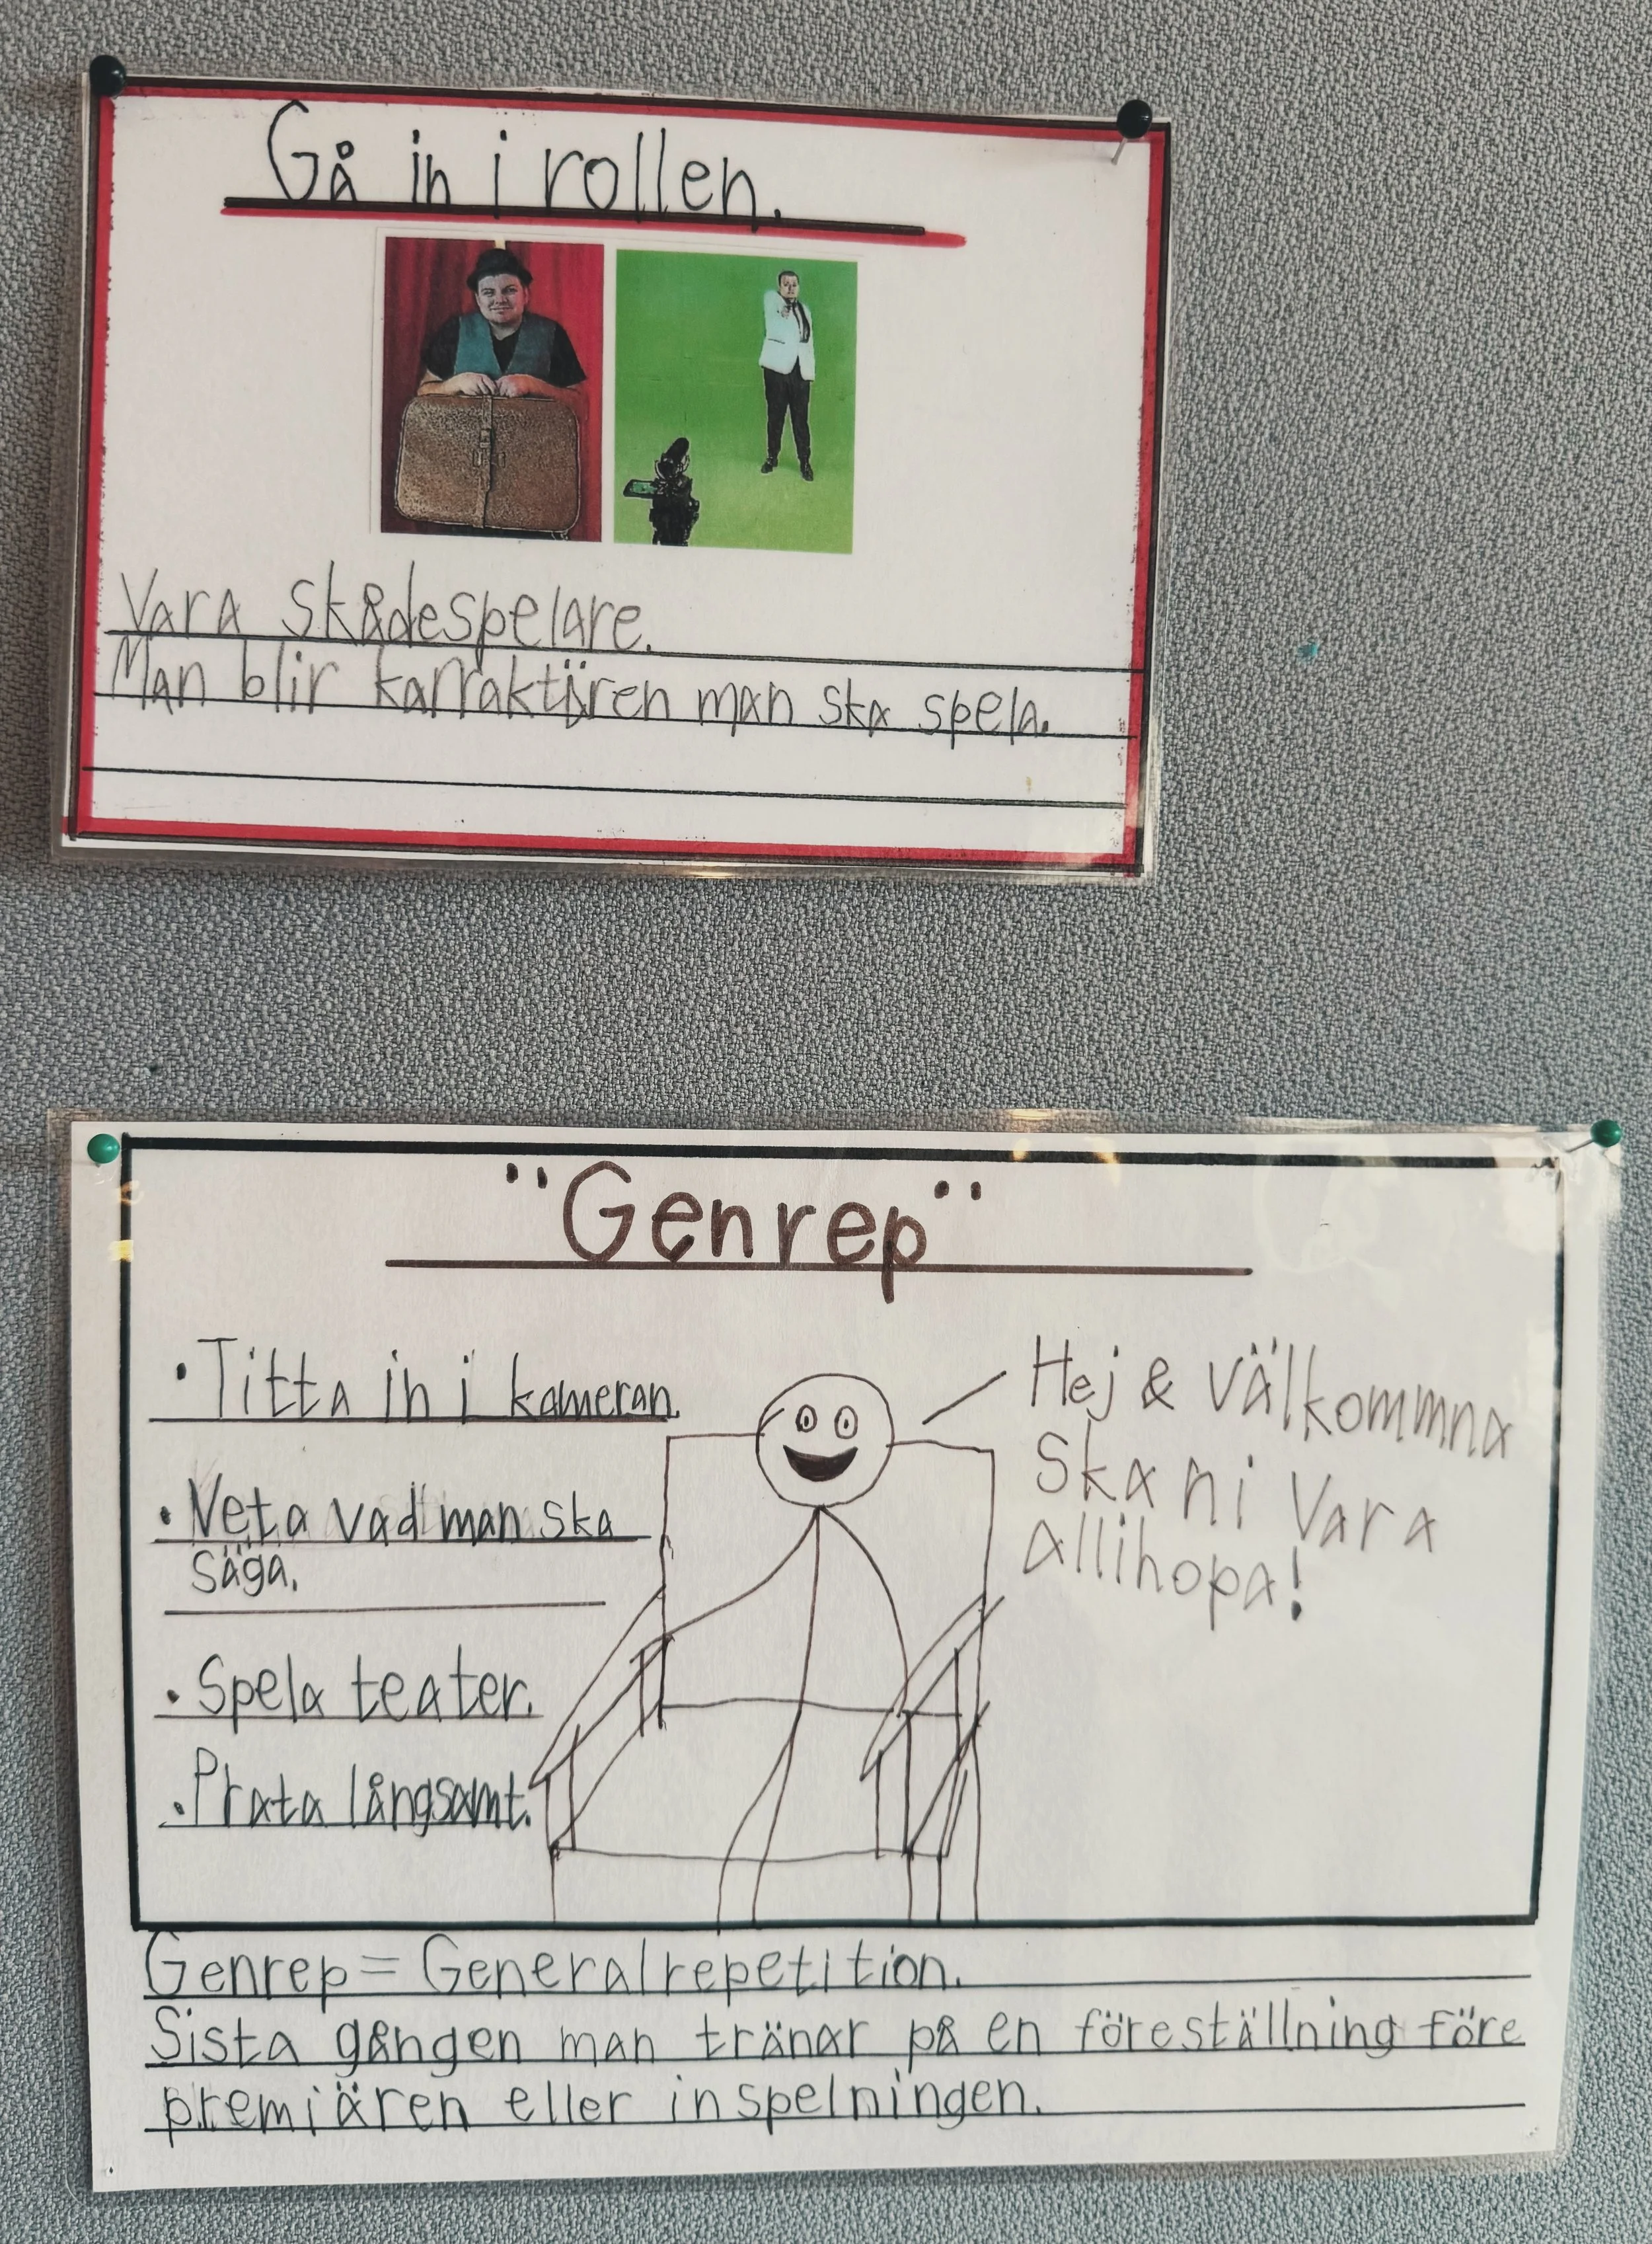 Gå in i rollen.
Vara skådespelare.
Man blir karraktären man ska spela.
"Genrep"
• Titta in i kameran.
• Veta vad man ska
säga.
• Spela teater.
• Prata långsamt.
Hej & välkommna
Ska ni vara
allihopa!
Genrep = Generalrepetition.
Sista gången man tränar på en föreställning före
premiären eller inspelningen.